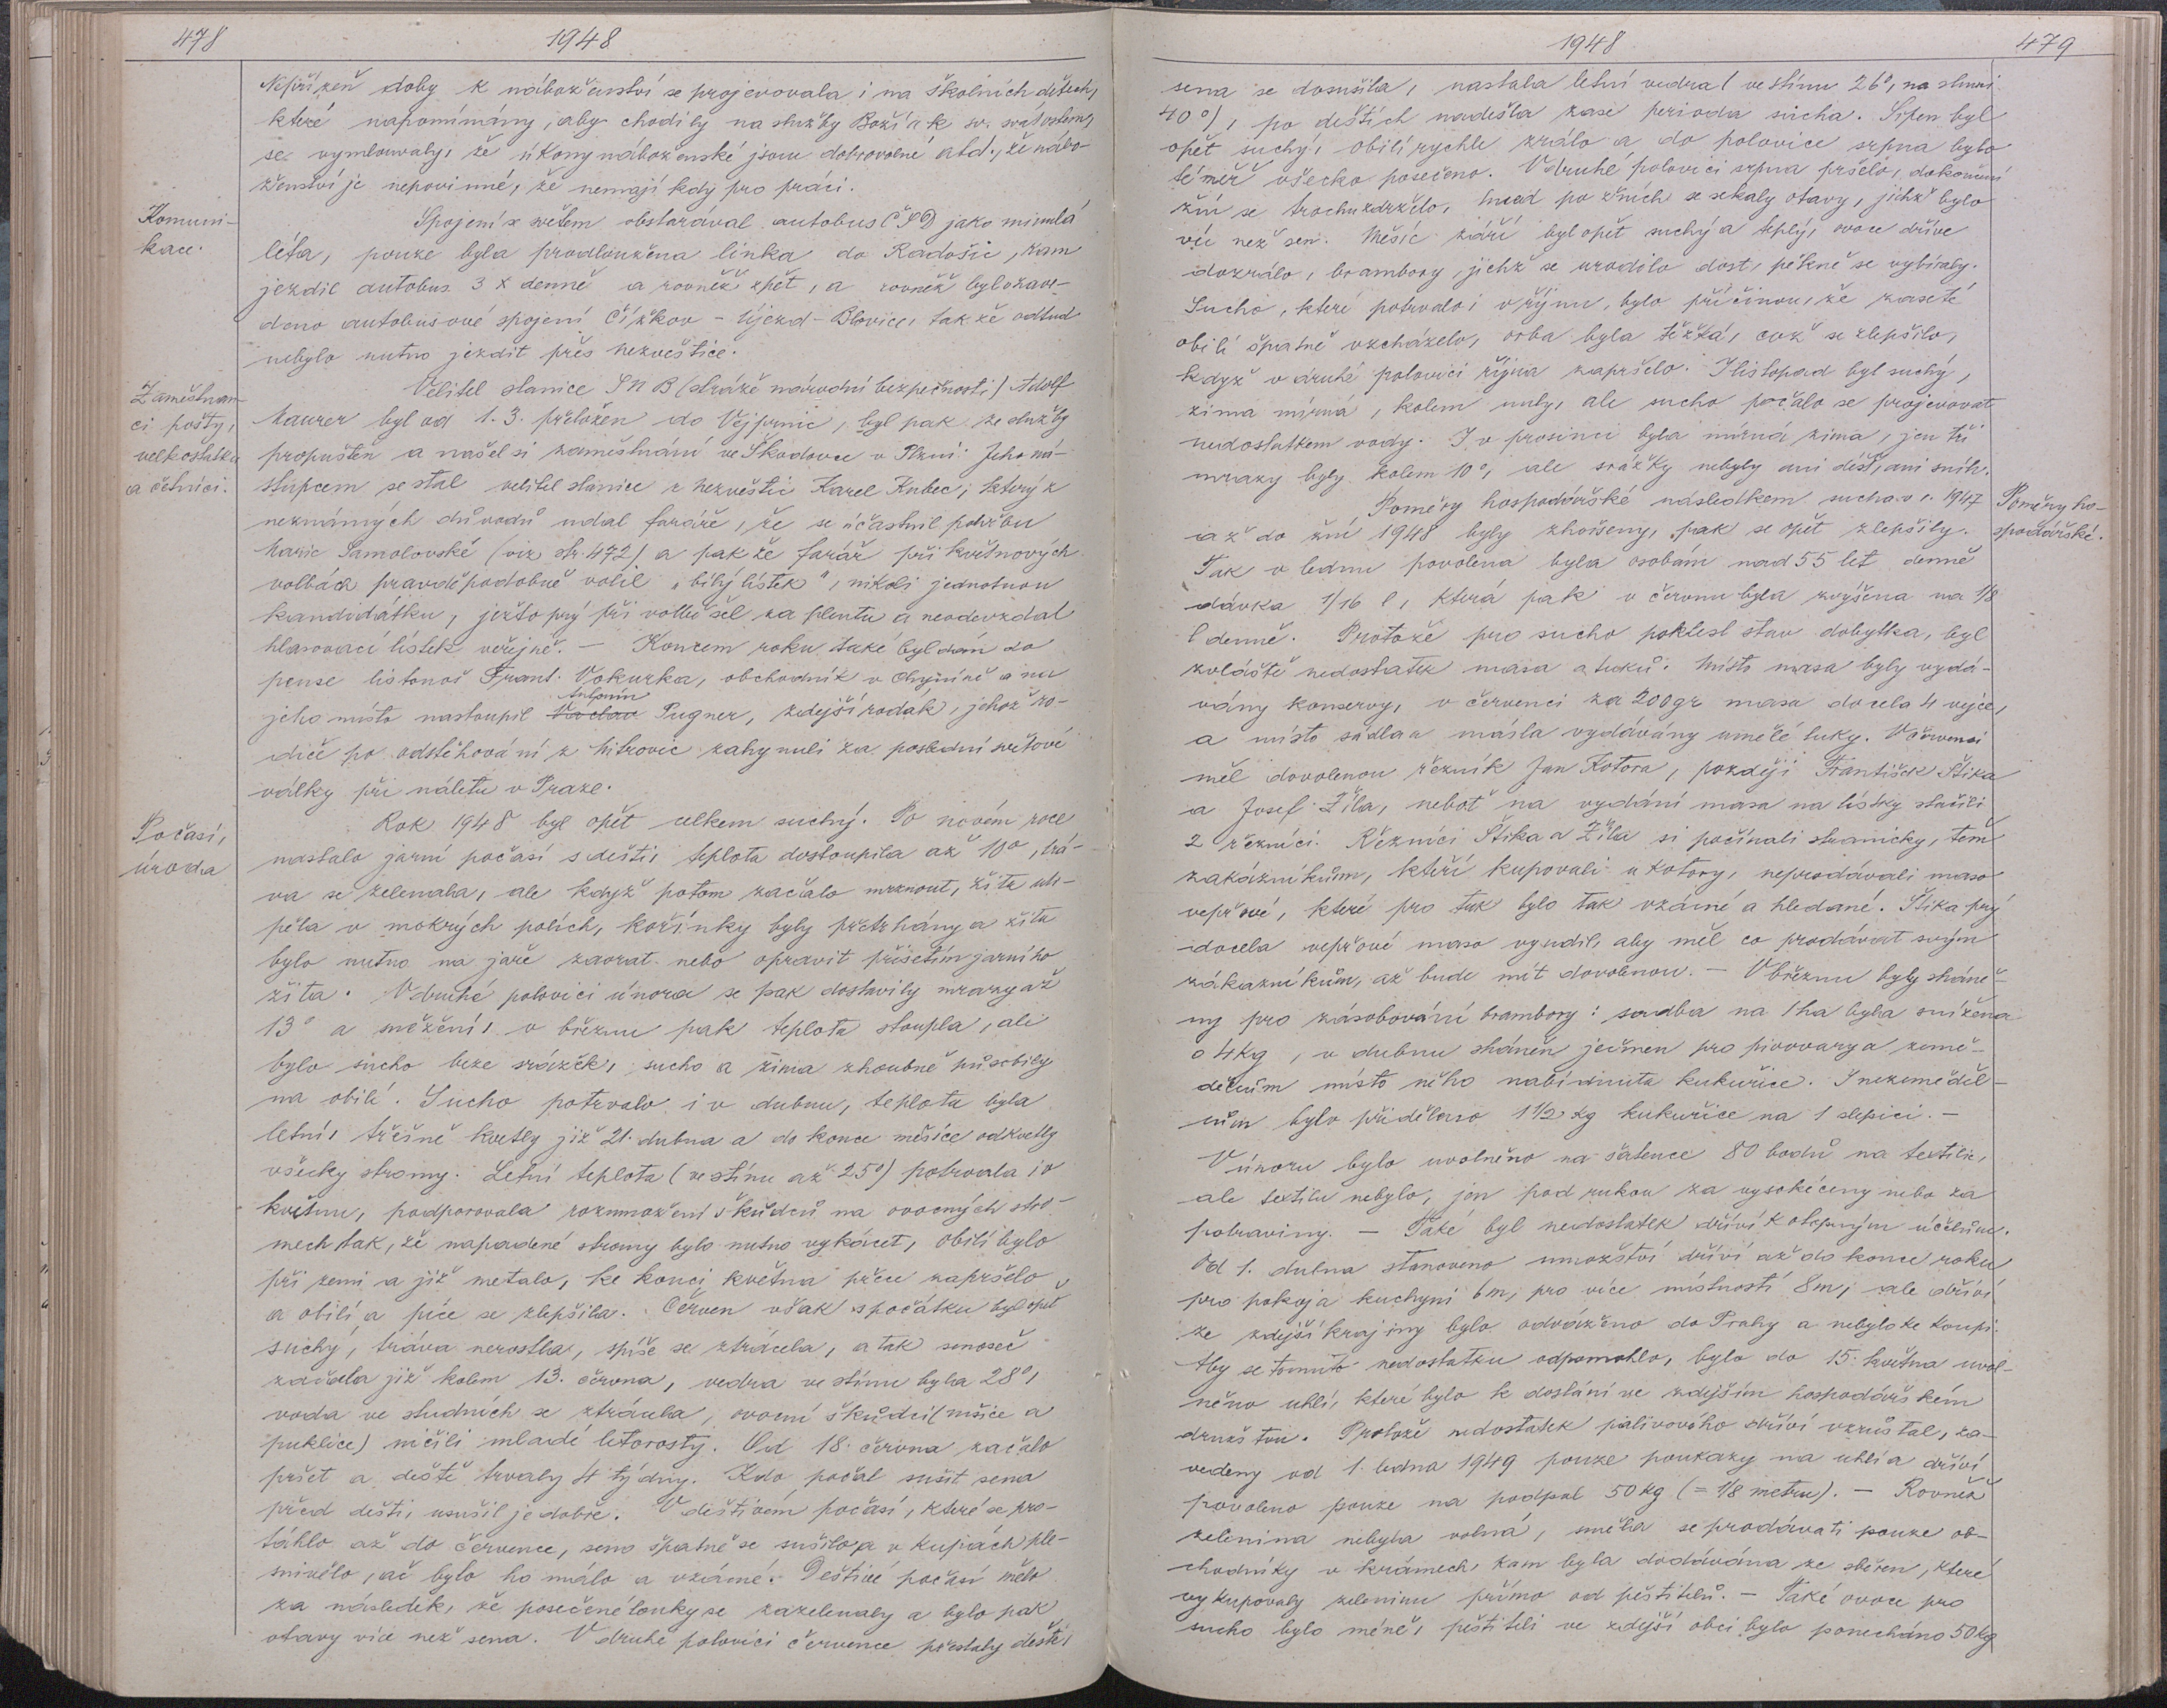 478
1948
Nepřízeň doby k náboženství se projevovala i na školních dětech,
které napomínány, aby chodily na služby Boží a k sv. svátostem,
se vymlouvaly, že úkony náboženské jsou dobrovolné atd., že nábo-
ženství je nepovinné, že nemají kdy pro práci.
Komuni-
kace.
Spojení se světem obstarával autobus ČSD jako minulá
léta, pouze byla prodloužena linka do Radošic, kam
jezdil autobus 3 x denně a rovněž zpět, a rovněž bylo zave-
deno autobusové spojení Čížkov - Újezd - Blovice, takže odtud
nebylo nutno jezdit přes Nezvěstice.
Zaměstnan-
ci pošty,
velkostatku
a četníci.
Velitel stanice SNB (stráže národní bezpečnosti) Adolf
Maurer byl od 1.3. přeložen do Vejprnic, byl pak ze služby
propuštěn a našel si zaměstnání ve Škodovce v Plzni. Jeho ná-
stupcem se stal velitel stanice z Nezvěstic Karel Kubec, který z
neznámých důvodů udal faráře, že se účastnil pohřbu
Marie Samolovské (viz str. 472) a pak že farář při květnových
volbách pravděpodobně volil "bílý lístek", nikoli jednotnou
kandidátku, ježto prý při volbě šel za plentu a neodevzdal
hlasovací lístek veřejně. - Koncem roku také byl dán do
pense listonoš Frant. Vokurka, obchodník v Chyníně a na
Antonín
jeho místo nastoupil Václav Pugner, zdejší rodák, jehož ro-
diče po odstěhování z Mitrovic zahynuli za poslední světové
války při náletu v Praze.
Počasí,
úroda
Rok 1948 byl opět celkem suchý. Po novém roce
nastalo jarní počasí s dešti, teplota dostoupila až 10°, trá-
va se zelenala, ale když potom začalo mrznout, žita utr-
pěla v mokrých polích, kořínky byly přetrhány a žita
bylo nutno na jaře zaorat nebo opravit přísetím jarního
žita. V druhé polovici února se pak dostavily mrazy až
13° a sněžení, v březnu pak teplota stoupla, ale
bylo sucho beze srážek, sucho a zima zhoubně působily
na obilí. Sucho potrvalo i v dubnu, teplota byla
letní, třešně kvetly již 21. dubna a do konce měsíce odkvetly
všecky stromy. Letní teplota (ve stínu až 25°) potrvala i v
květnu, podporovala rozmnožení škůdců na ovocných stro-
mech tak, že napadené stromy bylo nutno vykácet, obilí bylo
při zemi a již metalo, ke konci května přece zapršelo
a obilí a píce se zlepšila. Červen však spočátku byl opět
suchý, tráva nerostla, spíše se ztrácela, a tak senoseč
začala již kolem 13. června, vedra ve stínu byla 28°,
voda ve studních se ztrácela, ovocní škůdci (mšice a
puklice) ničili mladé letorosty. Od 18. června začalo
pršet a deště trvaly 4 týdny. Kdo počal sušit sena
před dešti, usušil je dobře. V deštivém počasí, které se pro-
táhlo až do července, seno špatně se sušilo a v kupách ple-
snivělo, ač bylo ho málo a vzácné. Deštivé počasí mělo
za následek, že posečené louky se zazelenaly a bylo pak
otavy více než sena. V druhé polovici července přestaly deště,
1948
479
sena se dosušila, nastala letní vedra (ve stínu 26°, na slunci
40°), po deštích nadešla zase perioda sucha. Srpen byl
opět suchý, obilí rychle zrálo a do polovice srpna bylo
téměř všecko posečeno. V druhé polovici srpna pršelo, dokončení
žní se trochu zdrželo, hned po žních se sekaly otavy, jichž bylo
víc než sen. Měsíc září byl opět suchý a teplý, ovoce dříve
dozrálo, brambory, jichž se urodilo dost, pěkně se vybíraly.
Sucho, které potrvalo i v říjnu, bylo příčinou, že zaseté
obilí špatně vzcházelo, orba byla těžká, což se zlepšilo,
když v druhé polovici října zapršelo. I listopad byl suchý,
zima mírná, kolem nuly, ale sucho počalo se projevovat
nedostatkem vody. I v prosinci byla mírná zima, jen tři
mrazy byly kolem 10°, ale srážky nebyly ani déšť, ani sníh.
Poměry ho-
spodářské.
Poměry hospodářské následkem sucha v r. 1947
až do žní 1948 byly zhoršeny, pak se opět zlepšily.
Tak v lednu povolena byla osobám nad 55 let denně
dávka 1/16 l, která pak v červnu byla zvýšena na 1/8
l denně. Protože pro sucho poklesl stav dobytka, byl
zvláště nedostatek masa a tuků. Místo masa byly vydá-
vány konservy, v červenci za 200gr masa docela 4 vejce,
a místo sádla a másla vydávány umělé tuky. V červenci
měl dovolenou řezník Jan Kotora, později František Štika
a Josef Žíla, neboť na vydání masa na lístky stačili
2 řezníci. Řezníci Štika a Žíla si počínali stranicky, těm
zákazníkům, kteří kupovali u Kotory, neprodávali maso
vepřové, které pro tuk bylo tak vzácné a hledané. Štika prý
docela vepřové maso vyudil, aby měl co prodávat svým
zákazníkům, až bude mít dovolenou. - V březnu byly sháně-
ny pro zásobování brambory: sadba na 1 ha byla snížena
o 4kg, v dubnu sháněn ječmen pro pivovary a země-
dělcům místo něho nabídnuta kukuřice. I nezeměděl-
cům bylo přiděleno 1 1/2 kg kukuřice na 1 slepici. -
V únoru bylo uvolněno na šatence 80 bodů na textilie,
ale textilu nebylo, jen pod rukou za vysoké ceny nebo za
potraviny. - Také byl nedostatek dříví k otopným účelům.
Od 1. dubna stanoveno množství dříví až do konce roku
pro pokoj a kuchyni 6m, pro více místností 8m, ale dříví
ze zdejší krajiny bylo odváženo do Prahy a nebylo ke koupi.
Aby se tomuto nedostatku odpomohlo, bylo do 15. května uvol-
něno uhlí, které bylo k dostání ve zdejším hospodářském
družstvu. Protože nedostatek palivového dříví vzrůstal, za-
vedeny od 1. ledna 1949 pouze poukazy na uhlí a dříví
povoleno pouze na podpal 50 kg (= 1/8 metru). - Rovněž
zelenina nebyla volná, směla se prodávati pouze ob-
chodníky v krámech, kam byla dodávána ze sběren, které
vykupovaly zeleninu přímo od pěstitelů. - Také ovoce pro
sucho bylo méně, pěstiteli ve zdejší obci bylo ponecháno 50 kg